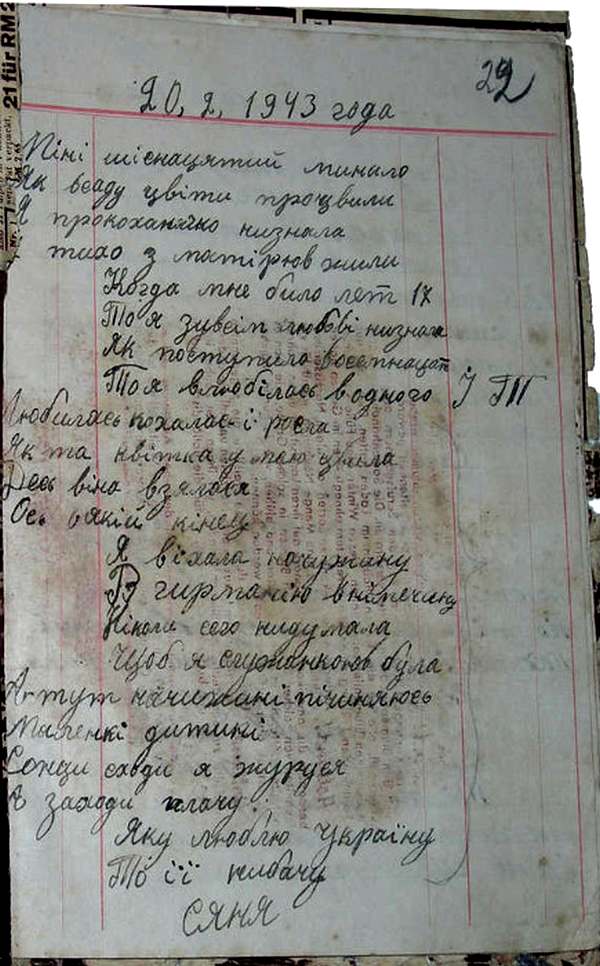 21 für RM2
22
20, 2, 1943 года
Міні шіснацятий минало
Як всаду цвіти процвили
Я прокоханяко низнала
тихо з матірюв жили
Когда мне било лет 17
То я зувсім любві низнала
Як поступило восемнацат
То я влюбілась водного І ТП
Любилась кохалась і росла
Як та квітка у маю цвила
Десь віна взялася
Ось оякій кінец
Я віхала начужину
В гирманію внімечину
Ніколи сего нидумала
Щоб я служанкоюв була
А тут начижині пічиняюсь
Маленкі дитикі
Сонци сходи я журуся
А заходи плачу
Яку люблю Україну
То її нибачу
СЯНЯ